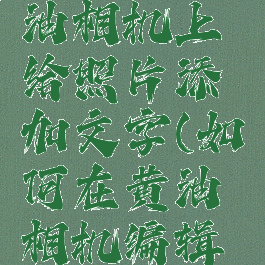 油相机上
给照片添
加文字(如
何在黄油
相机编辑